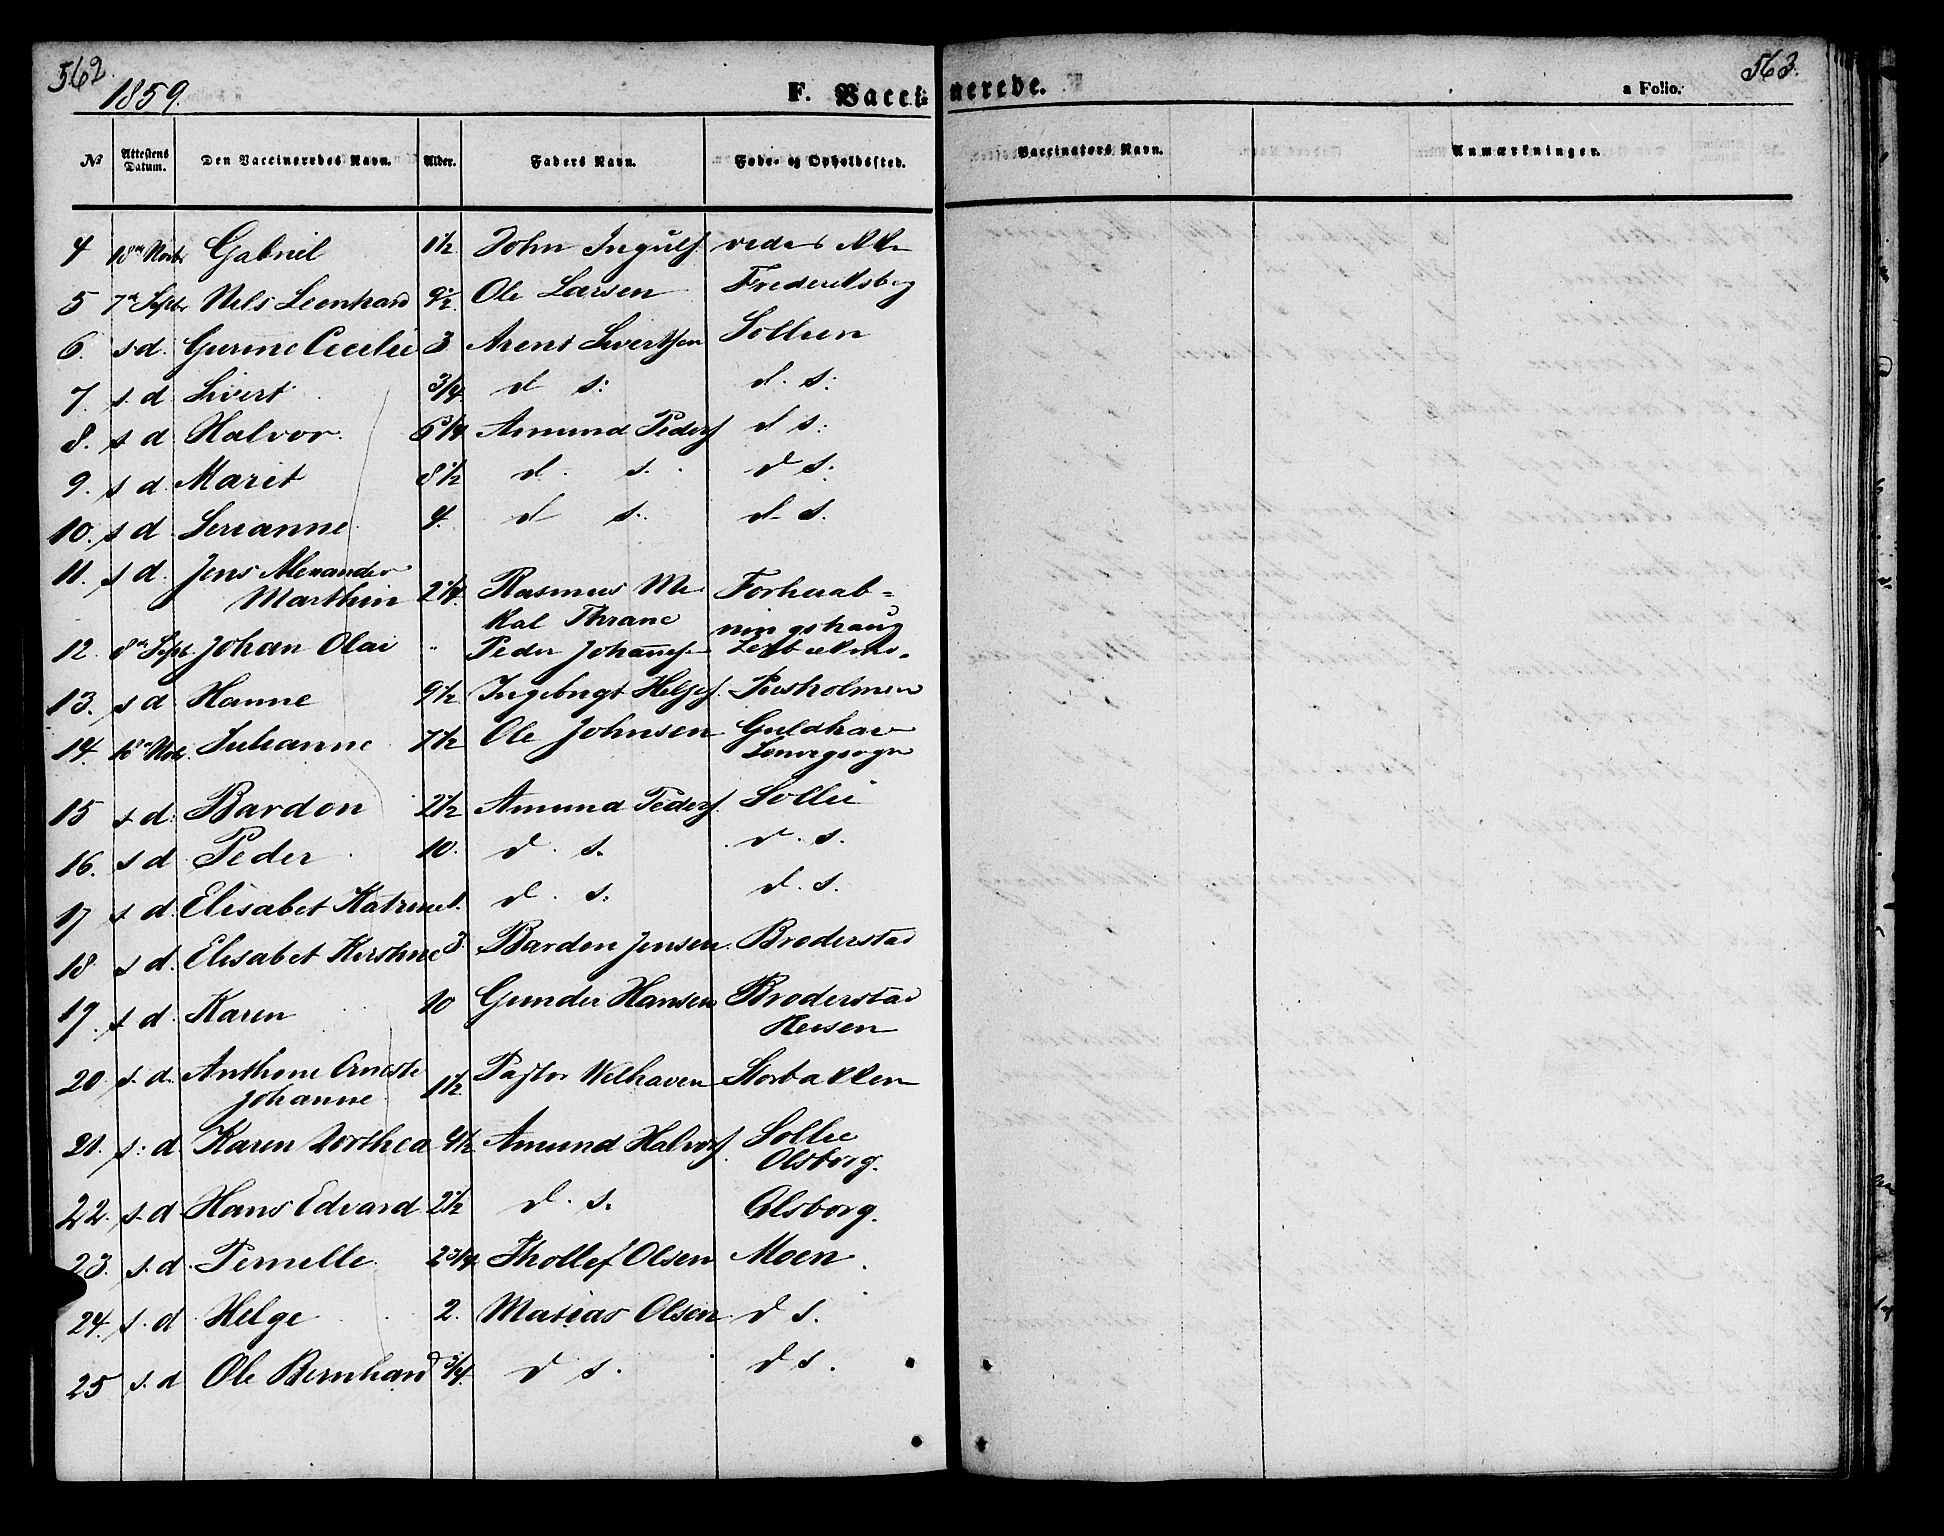 562.
1859.
F. Vaccinerede.
a Folio.
563.
No Attestens Datum. Den Vaccineredes Navn. Alder. Faders Navn. Føde- og Opholdssted. Vaccinators Navn. Anmærkninger.
4 18de Novbr Gabriel 1 1/2 John Ingulfs.
5 7de Septbr Nels Leonhard 9 1/2. Ole Larsen Frederiksberg
6. s d. Gurine Cecilie 3 Arent Sivertsen Sollien
7. s. d Sivert 3/4. d s: d. s:
8. s d. Halvor. 6 1/4 Amund Peders d s:
9. s d. Marit 8 1/2 d. s. d s:
10. s d. Serianne. 4. d s. d s.
11. s d. Jens Alexander
Marthin 2 1/4. Rasmus Mi= Forhaab=
kal Thrane ningshaug
12. 8de Septr. Johan Olai " Peder Johannes.
13. s d. Hanne 9 1/2 Ingebrigt Helges.
14. 18de Novbr. Julianne 7 1/2 Ole Johnsen Guldhav
Lenvigsogn
15 s d. Bardon 2 1/2 Amund Peders. Sollie
16. s d. Peder 10. d. s. d. s.
17 s d. Elisabet Katrine 1. d. s. d. s.
18 s d. Elisabet Kirstine 3. Bardon Jensen Broderstad
19. s d. Karen 10 Gunder Hansen Broderstad
Reisen
20. s. d. Anthone Erneste
Johanne 1 1/2. Pastor Welhaven Storbakken
21. s: d. Karen Dorthea 4 1/2 Amund Halvors. Sollie
Olsborg.
22. s. d. Hans Edvard 2 1/2 d. s. Olsborg.
23. s. d. Pernelle 2 3/4 Thollef Olsen Moen.
24. s. d. Helge 2. Matias Olsen d s.
25 s. d Ole Bernhard 3/4. d s. d s.